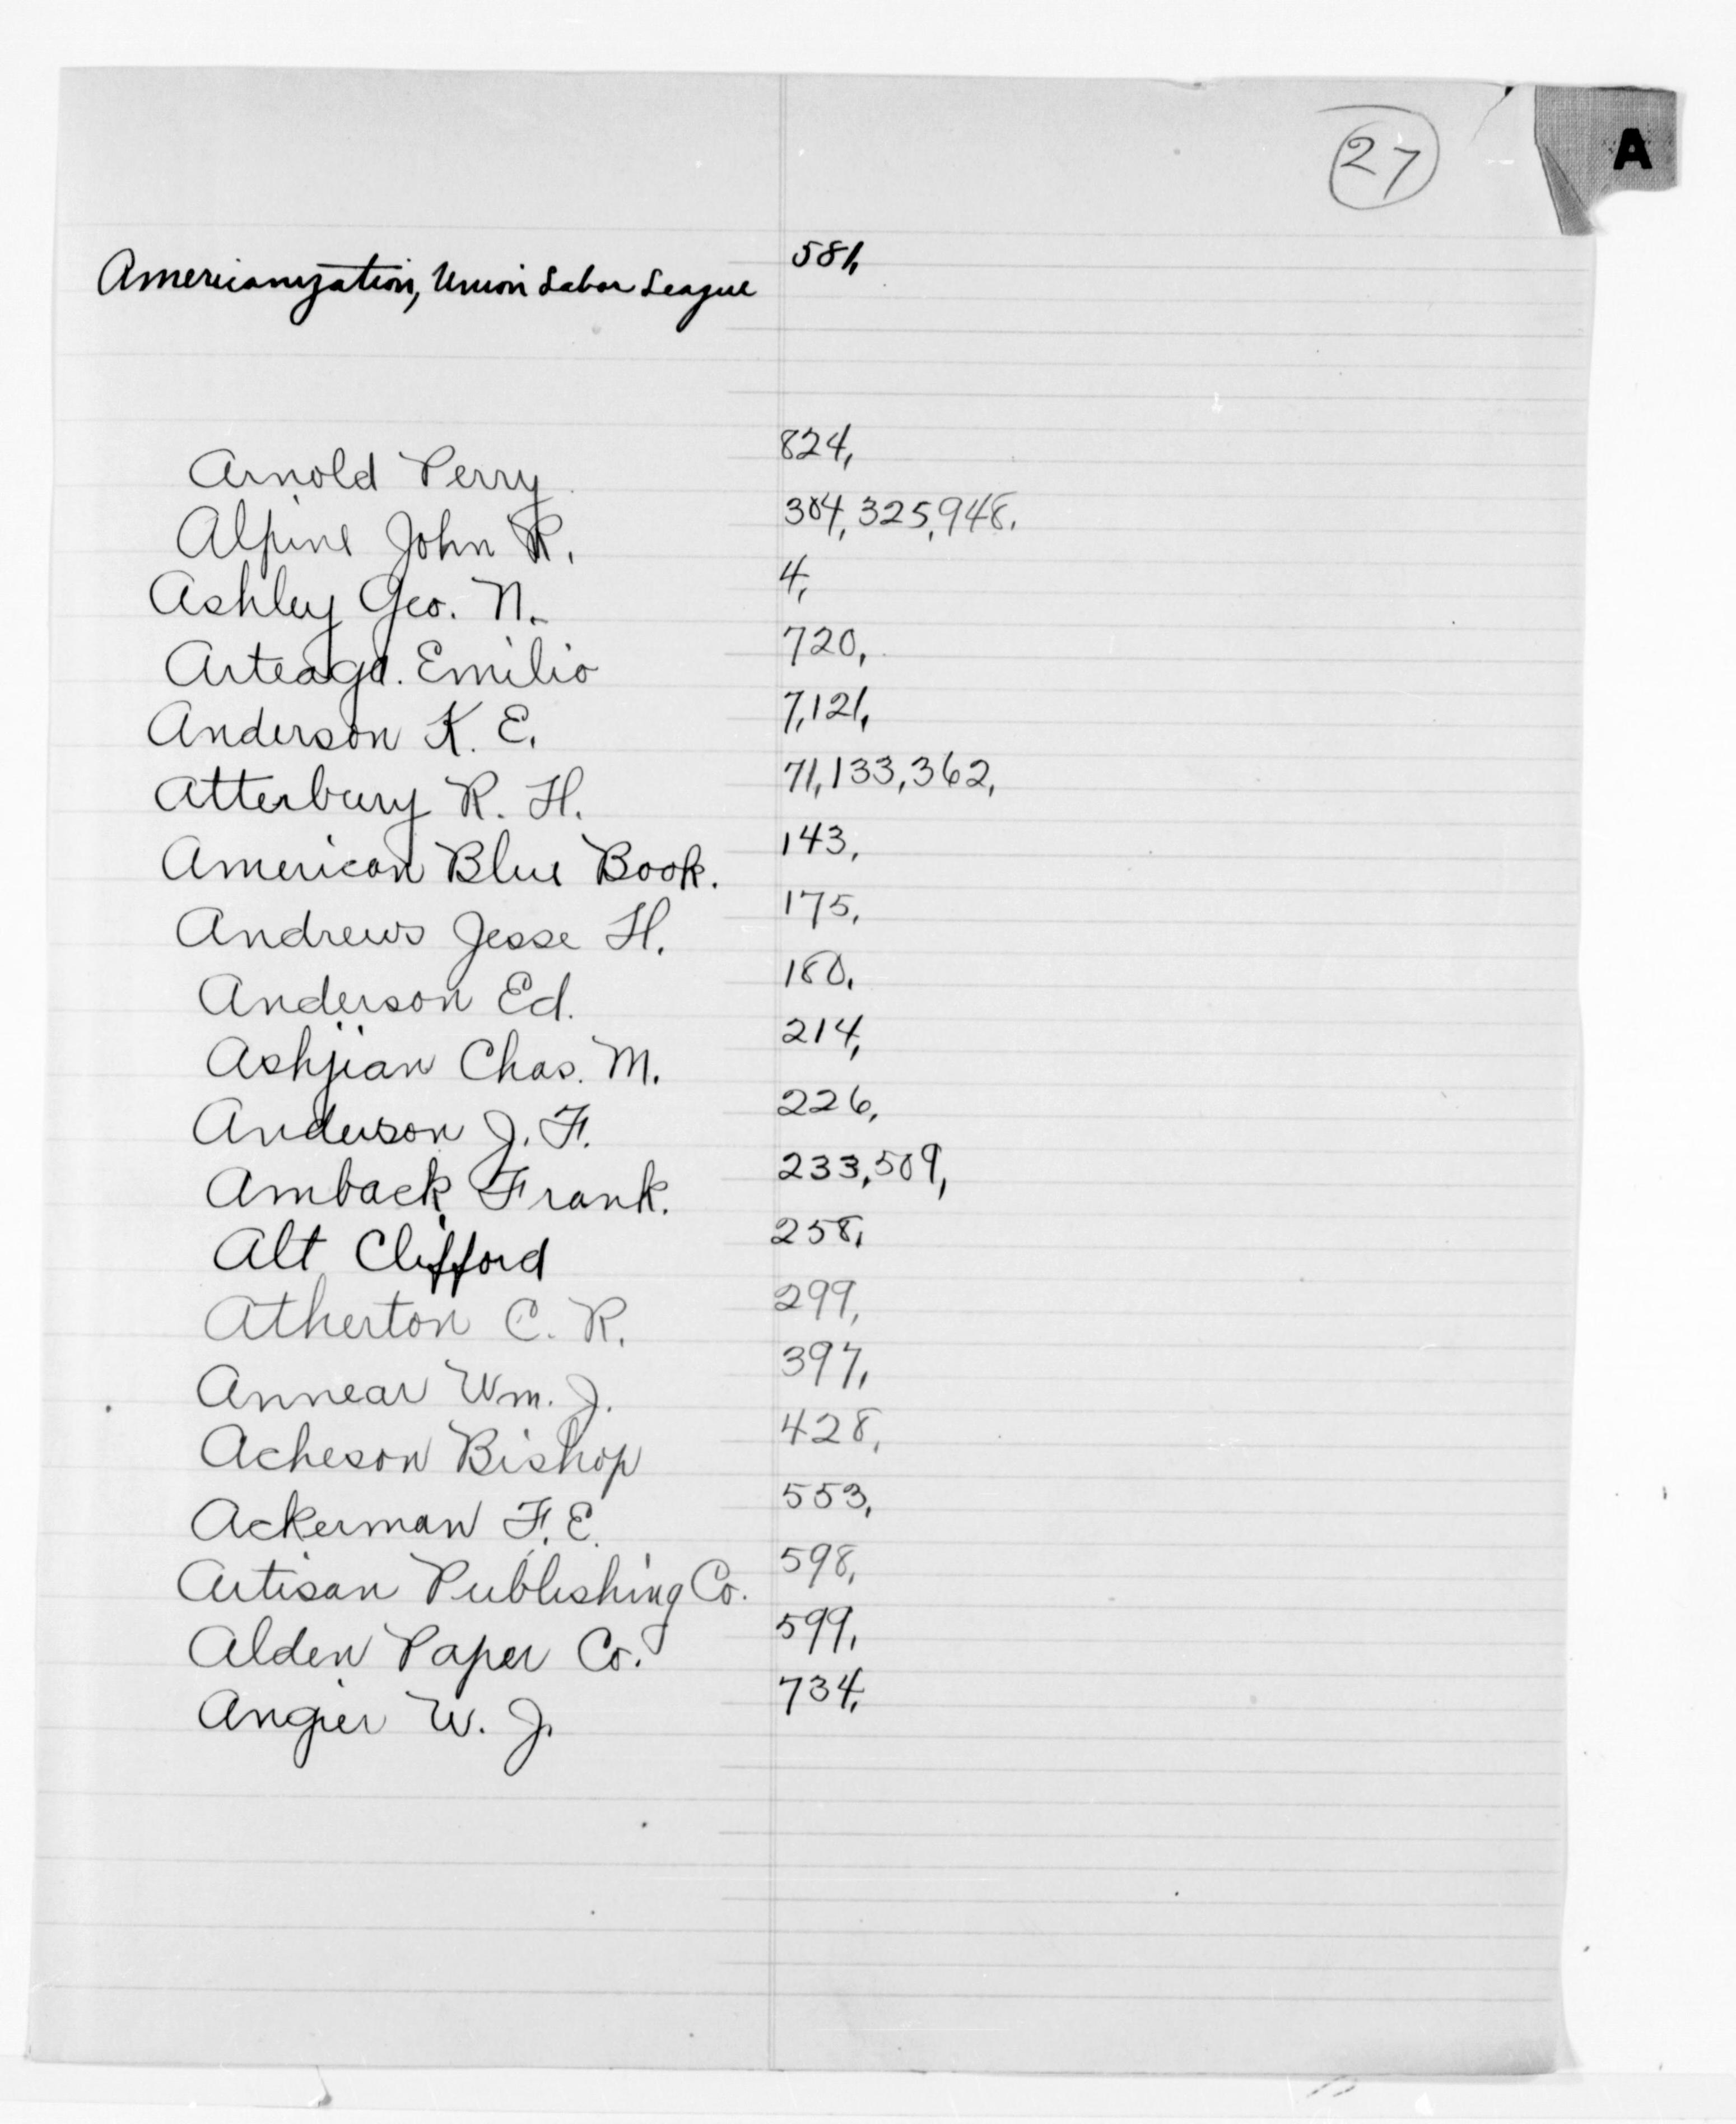 27
A
Americanization, Union Labor League 581,
Arnold Perry 824,
Alpine John R. 304, 325, 948.
Ashley Geo. N. 4,
Arteaga. Emilio 720,
Anderson K. E. 7, 121,
Atterbury R. H. 71, 133, 362,
American Blue Book. 143,
Andrews Jesse H. 175,
Anderson Ed. 180.
Ashjian Chas. M. 214,
Anderson J. F. 226,
Amback Frank. 233, 509,
Alt Clifford 258,
Atherton C. R. 299,
Annear Wm. J. 397,
Acheson Bishop 428,
Ackerman F. E. 553,
Artisan Publishing Co. 598,
Alden Paper Co. 599,
Angier W. J. 734,